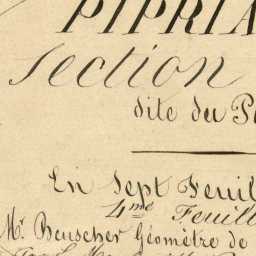 PIPRIA
Section
dite du P
En Sept Feuil
4me Feuill
Mr Beuscher Géomètre de